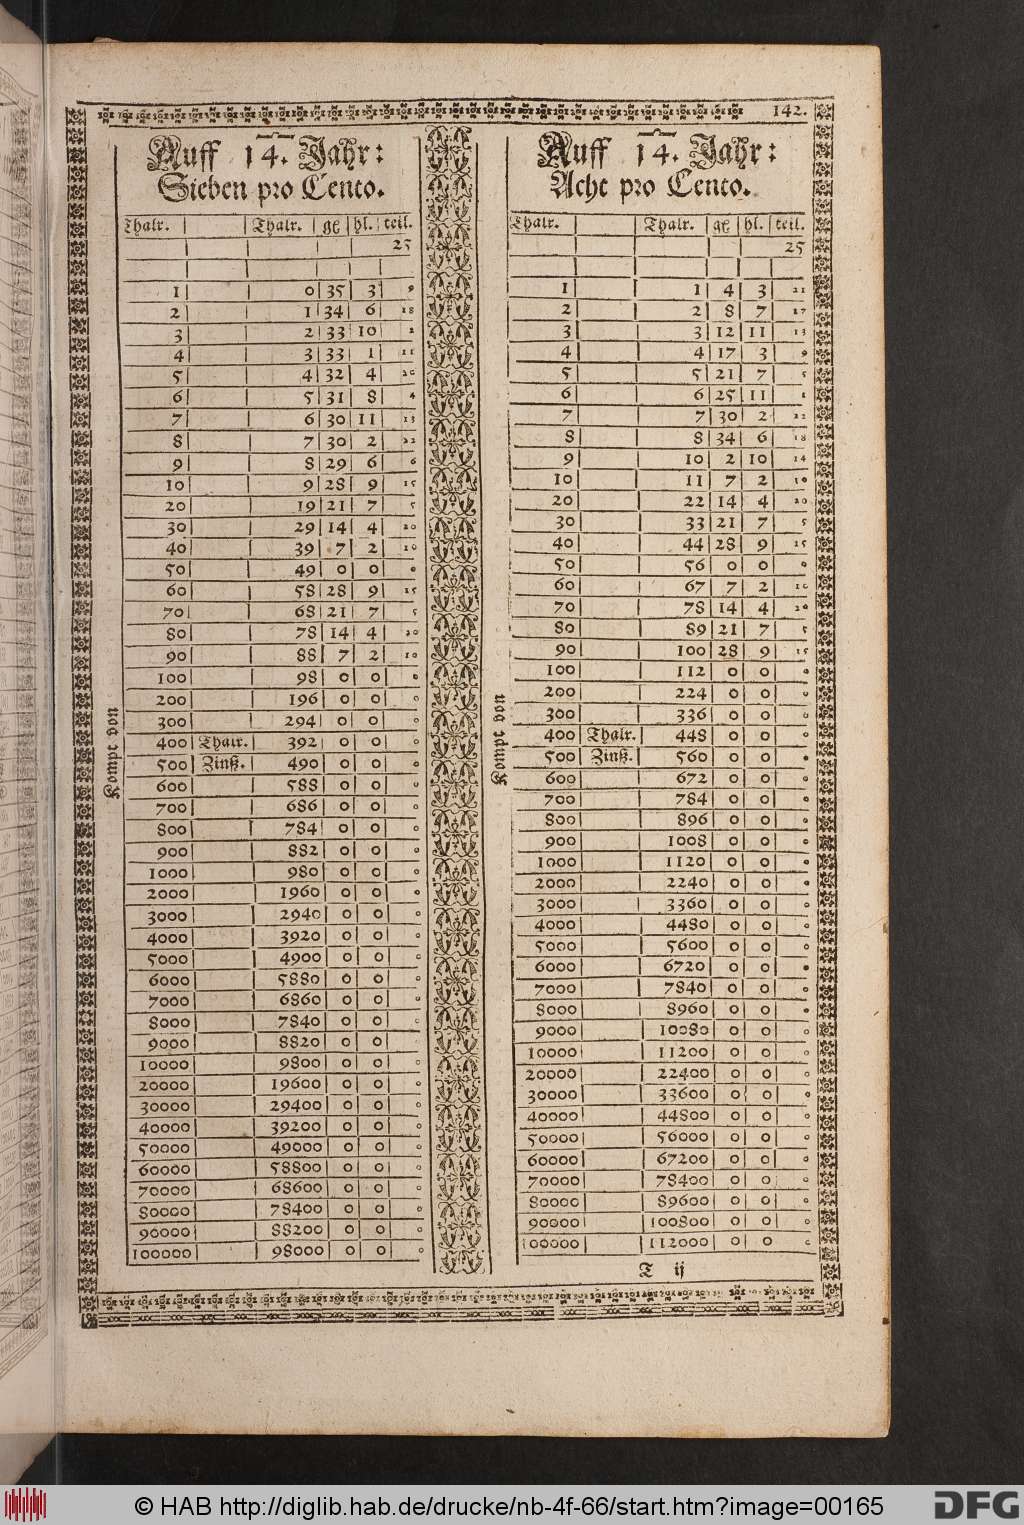 142.
Auff 14. Jahr:
Sieben pro Cento.
Thalr. Thalr. gl hl. teil.
25
1 0 35 3 9
2 1 34 6 18
3 2 33 10 2
4 3 33 1 11
5 4 32 4 20
6 5 31 8 4
7 6 30 11 13
8 7 30 2 22
9 8 29 6 6
10 9 28 9 15
20 19 21 7 5
30 29 14 4 20
40 39 7 2 10
50 49 0 0 0
60 58 28 9 15
70 68 21 7 5
80 78 14 4 20
90 88 7 2 10
100 98 0 0 0
200 196 0 0 0
300 294 0 0 0
400 Thalr. 392 0 0 0
500 Zinß. 490 0 0 0
600 588 0 0 0
700 686 0 0 0
800 784 0 0 0
900 882 0 0 0
1000 980 0 0 0
2000 1960 0 0 0
3000 2940 0 0 0
4000 3920 0 0 0
5000 4900 0 0 0
6000 5880 0 0 0
7000 6860 0 0 0
8000 7840 0 0 0
9000 8820 0 0 0
10000 9800 0 0 0
20000 19600 0 0 0
30000 29400 0 0 0
40000 39200 0 0 0
50000 49000 0 0 0
60000 58800 0 0 0
70000 68600 0 0 0
80000 78400 0 0 0
90000 88200 0 0 0
100000 98000 0 0 0
Kompt von
Auff 14. Jahr:
Acht pro Cento.
Thalr. Thalr. gl hl. teil.
25
1 1 4 3 21
2 2 8 7 17
3 3 12 11 13
4 4 17 3 9
5 5 21 7 5
6 6 25 11 1
7 7 30 2 22
8 8 34 6 18
9 10 2 10 14
10 11 7 2 10
20 22 14 4 20
30 33 21 7 5
40 44 28 9 15
50 56 0 0 0
60 67 7 2 10
70 78 14 4 20
80 89 21 7 5
90 100 28 9 15
100 112 0 0 0
200 224 0 0 0
300 336 0 0 0
400 Thalr. 448 0 0 0
500 Zinß. 560 0 0 0
600 672 0 0 0
700 784 0 0 0
800 896 0 0 0
900 1008 0 0 0
1000 1120 0 0 0
2000 2240 0 0 0
3000 3360 0 0 0
4000 4480 0 0 0
5000 5600 0 0 0
6000 6720 0 0 0
7000 7840 0 0 0
8000 8960 0 0 0
9000 10080 0 0 0
10000 11200 0 0 0
20000 22400 0 0 0
30000 33600 0 0 0
40000 44800 0 0 0
50000 56000 0 0 0
60000 67200 0 0 0
70000 78400 0 0 0
80000 89600 0 0 0
90000 100800 0 0 0
100000 112000 0 0 0
Kompt von
T ij
© HAB http://diglib.hab.de/drucke/nb-4f-66/start.htm?image=00165
DFG